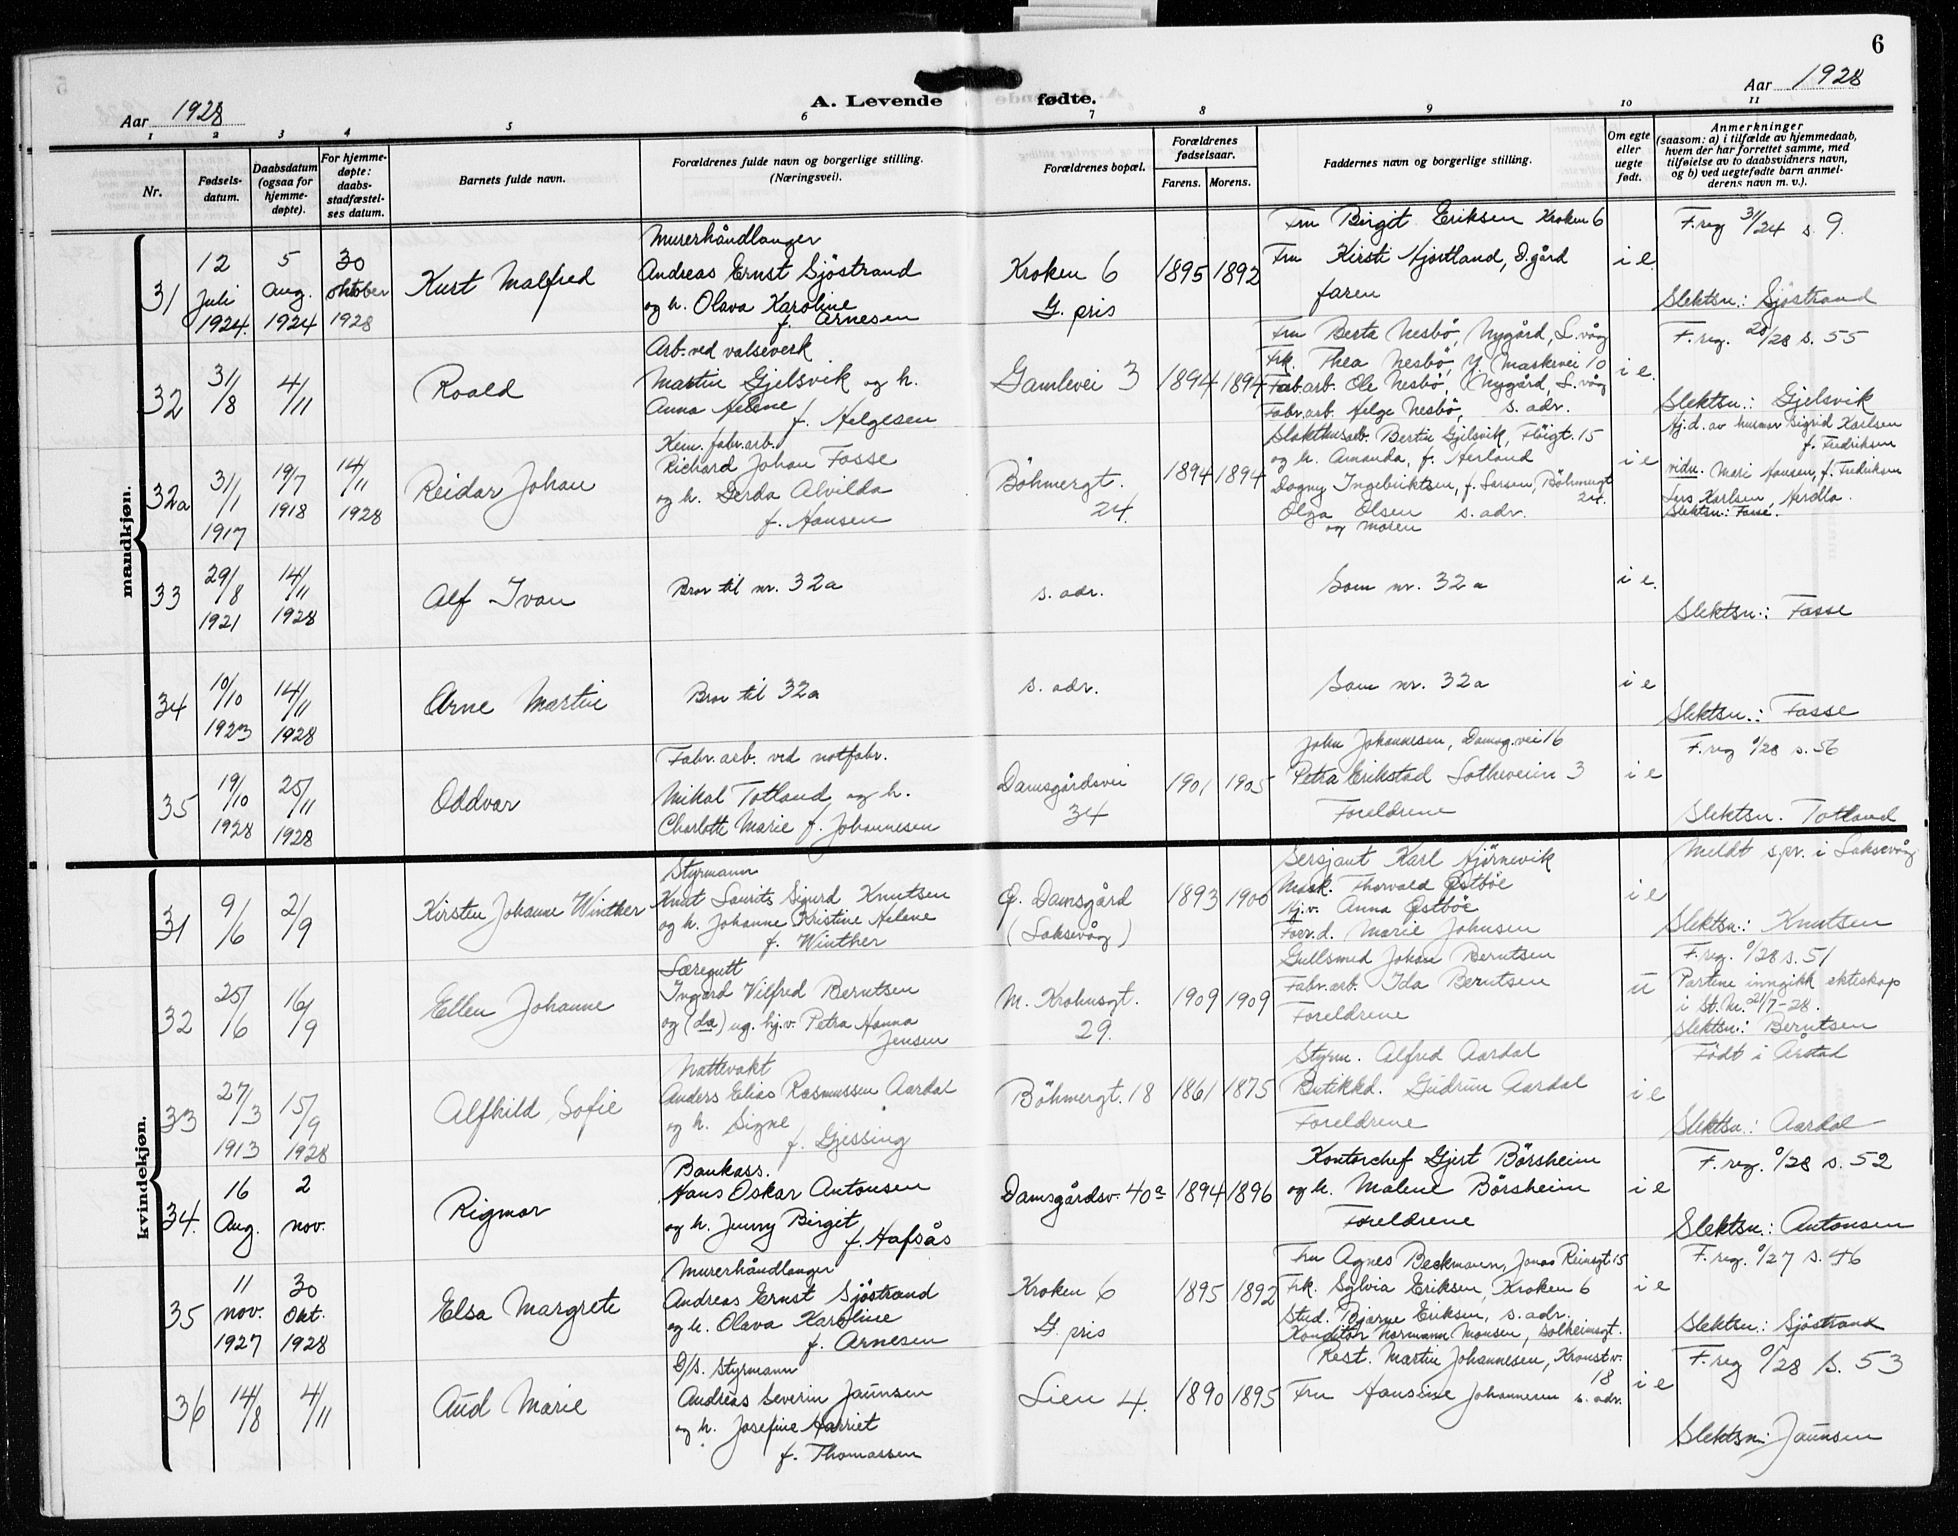 6
Aar 1928
A. Levende fødte.
Aar 1928
1 2 3 4 5 6 7 8 9 10 11
Nr.
Fødsels-
datum.
Daabsdatum
(ogsaa for
hjemme-
døpte).
For hjemme-
døpte:
daabs-
stadfæstel-
ses datum.
Barnets fulde navn.
Forældrenes fulde navn og borgerlige stilling.
(Næringsvei).
Forældrenes bopæl.
Forældrenes
fødselsaar.
Farens. Morens.
Faddernes navn og borgerlige stilling.
Om egte
eller
uegte
født.
Anmerkninger
(saasom: a) i tilfælde av hjemmedaab,
hvem der har forrettet samme, med
tilføielse av to daabsvidners navn,
og b) ved uegtefødte barn anmel-
derens navn m. v.).
mandkjøn.
31
12
Juli
1924.
5
Aug.
1924
30
oktober
1928
Kurt Malfred
Murerhåndlanger
Andreas Ernst Sjöstrand
og h. Olava Karoline
f. Arnesen
Kroken 6
G. pris
1895 1892
Fru Birgit Eriksen Kroken 6
Fru Kirsti Hjortland, D.gård
faren
i e.
F.reg 31/24 s. 9.
Slektsn: Sjöstrand
32
31/8
4/11
Roald
Arb. ved valseverk
Martin Gjelsvik og h.
Anna Helene
f. Helgesen
Gamlevei 3
1894 1894
Fru Berta Nesbö, Nygård, L.våg
Frk. Thea Nesbö, Y. Markevei 10
Fab.arb. Ole Nesbö, Nygård, L.våg
Fabr.arb. Helge Nesbö, s. adr.
i e.
F.reg. 20/28 s. 55
Slektsn.: Gjelsvik
32a
31/1
1917
19/7
1918
14/11
1928
Reidar Johan
Kem. fabr.arb.
Richard Johan Fasse
og h. Gerda Alvilda
f. Hansen
Böhmergt.
24.
1894 1894
Slakthusarb. Bertin Gjelsvik, Flöigt. 15
og h. Amanda, f. Herland
Dagny Ingebriktsen, f. Larsen, Böhmergt
24.
Olga Olsen s. adr.
og moren
i e
Hj.d. av husmor Sigrid Karlsen
f. Fredriksen
vidn. Mari Hansen, f. Fredriksen
Lars Karlsen, Herdla.
Slektsn: Fasse.
33
29/8
1921
14/11
1928
Alf Ivan
Bror til nr. 32a
s. adr.
Som nr. 32a
i e.
Slektsn.: Fasse
34
10/10
1923
14/11
1928
Arne Martin
Bror til 32a
s. adr.
Som nr. 32a
i e
Slektsn.: Fasse
35
19/10
1928
25/11
1928
Oddvar
Fabr. arb. ved notfabr.
Mikal Totland og h.
Charlotte Marie f. Johannesen
Damsgårdsvei
34
1901 1905
John Johannesen, Damsg.vei 16
Petra Erikstad Lotheveien 3
Foreldrene
i e
F.reg 0/28 s. 56
Slektsn. Totland
kvindekjøn.
31
9/6
2/9
Kirsten Johanne Winther
Styrmann
Knut Laurits Sigurd Knutsen
og h. Johanne Kristine Helene
f. Winther
Ø. Damsgård
(Laksevåg)
1893 1900
Sersjant Karl Hjörnevik
Mask. Thorvald Østböe
Hj.v. Anna Østböe
Forr.d. Marie Johnsen
i e
Meldt s.pr. i Laksevåg
Slektsn.: Knutsen
32
25/6
16/9
Ellen Johanne
Læregutt
Ingard Vilfred Berntsen
og (da) ug. hj.v. Petra Hanna
Jensen
M. Krohnsgt.
29.
1909 1909
Gullsmed Johan Berntsen
Fabr.arb. Ida Berntsen
Foreldrene
u
F.reg. 0/28 s. 51
Partene inngikk ekteskap
i St. M. 21/7-28.
Slektsn.: Berntsen
33
27/3
1913
15/9
1928
Alfhild Sofie
Nattevakt
Anders Elias Rasmussen Aardal
og h. Signe
f. Gjessing
Böhmergt. 18
1861 1875
Styrm. Alfred Aardal
Butikkd. Gudrun Aardal
Foreldrene
i e
Födt i Årstad
Slektsn.: Aardal
34.
16
Aug.
2
nov.
Rigmor
Bankass.
Hans Oskar Antonsen
og h. Jenny Birgit
f. Hafsås
Damsgårdsv. 40a
1894 1896
Kontorchef Gjert Börsheim
og h. Malene Börsheim
Foreldrene
i e
F. reg. 0/28 s. 52
Slektsn.: Antonsen
35
11
nov.
1927
30
Okt.
1928
Elsa Margrete
Murerhåndlanger
Andreas Ernst Sjöstrand
og h. Olava Karoline
f. Arnesen
Kroken 6
G. pris
1895 1892
Fru Agnes Beckmann, Jonas Reinsgt 15
Frk. Sylvia Eriksen, Kroken 6
Stud. Bjarne Eriksen, s. adr.
Konditor Normann Monsen, Solheimsgt.
i e
F. reg. 0/27 s. 46
Slektsn: Sjöstrand
36
14/8
4/11
Aud Marie
D/S. Styrmann
Andreas Severin Jaunsen
og h. Josefine Harriet
f. Thomassen
Lien 4.
1890 1895
Rest. Martin Johannesen, Kronst v.
18
Fru Hansine Johannesen s. adr.
i e
F. reg 0/28 s. 53
Slektsn: Jaunsen